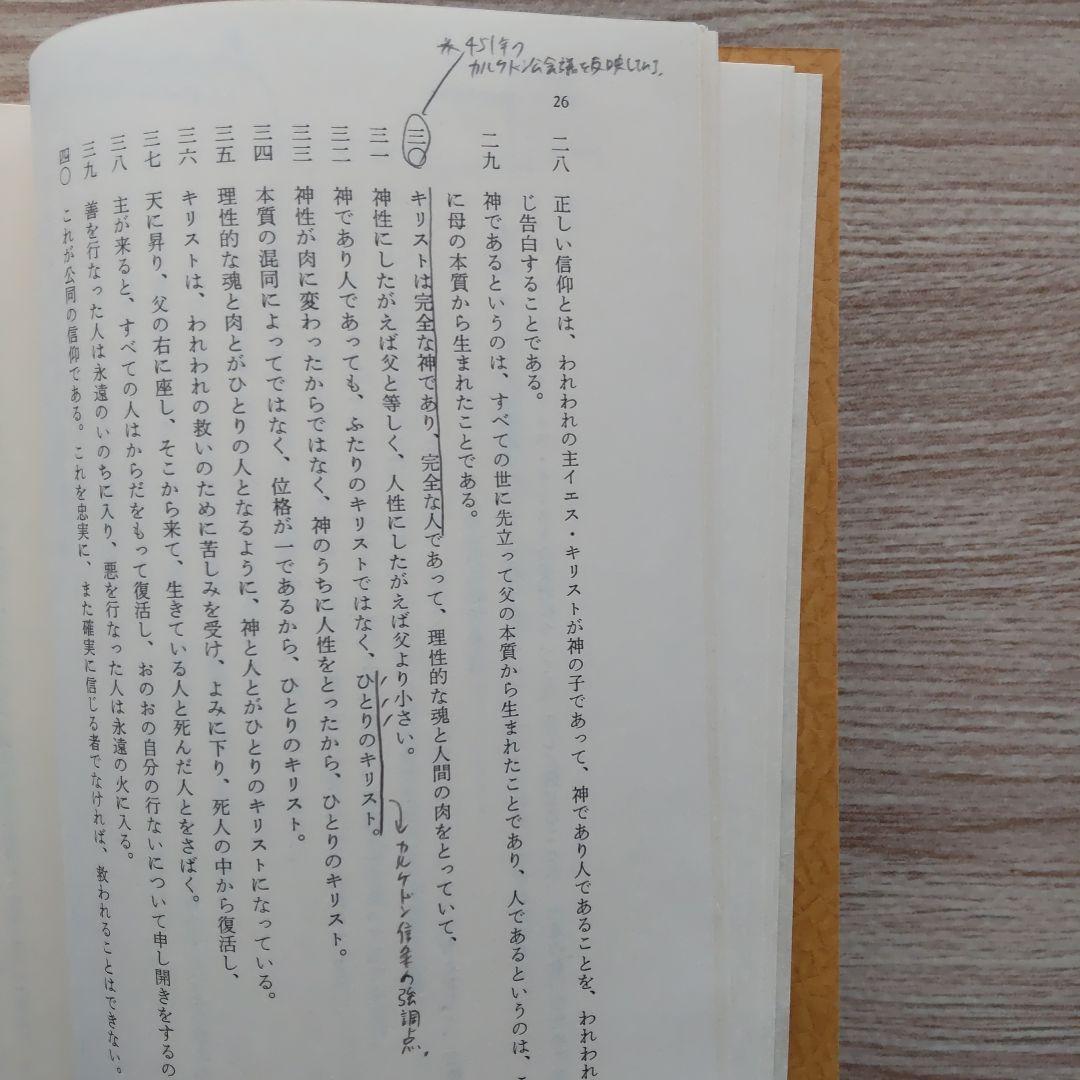 ※ 451年の
カルケドン公会議を反映している。
26
二八 正しい信仰とは、われわれの主イエス・キリストが神の子であって、神であり人であることを、われわれ
じ告白することである。
二九 神であるというのは、すべての世に先立って父の本質から生まれたことであり、人であるというのは、こ
に母の本質から生まれたことである。
三〇 キリストは完全な神であり、完全な人であって、理性的な魂と人間の肉をとっていて、
三一 神性にしたがえば父と等しく、人性にしたがえば父より小さい。
三二 神であり人であっても、ふたりのキリストではなく、ひとりのキリスト。
→カルケドン信条の強調点。
三三 神性が肉に変わったからではなく、神のうちに人性をとったから、ひとりのキリスト。
三四 本質の混同によってではなく、位格が一であるから、ひとりのキリスト。
三五 理性的な魂と肉とがひとりの人となるように、神と人とがひとりのキリストになっている。
三六 キリストは、われわれの救いのために苦しみを受け、よみに下り、死人の中から復活し、
三七 天に昇り、父の右に座し、そこから来て、生きている人と死んだ人とをさばく。
三八 主が来ると、すべての人はからだをもって復活し、おのおの自分の行ないについて申し開きをするの
三九 善を行なった人は永遠のいのちに入り、悪を行なった人は永遠の火に入る。
四〇 これが公同の信仰である。これを忠実に、また確実に信じる者でなければ、救われることはできない。